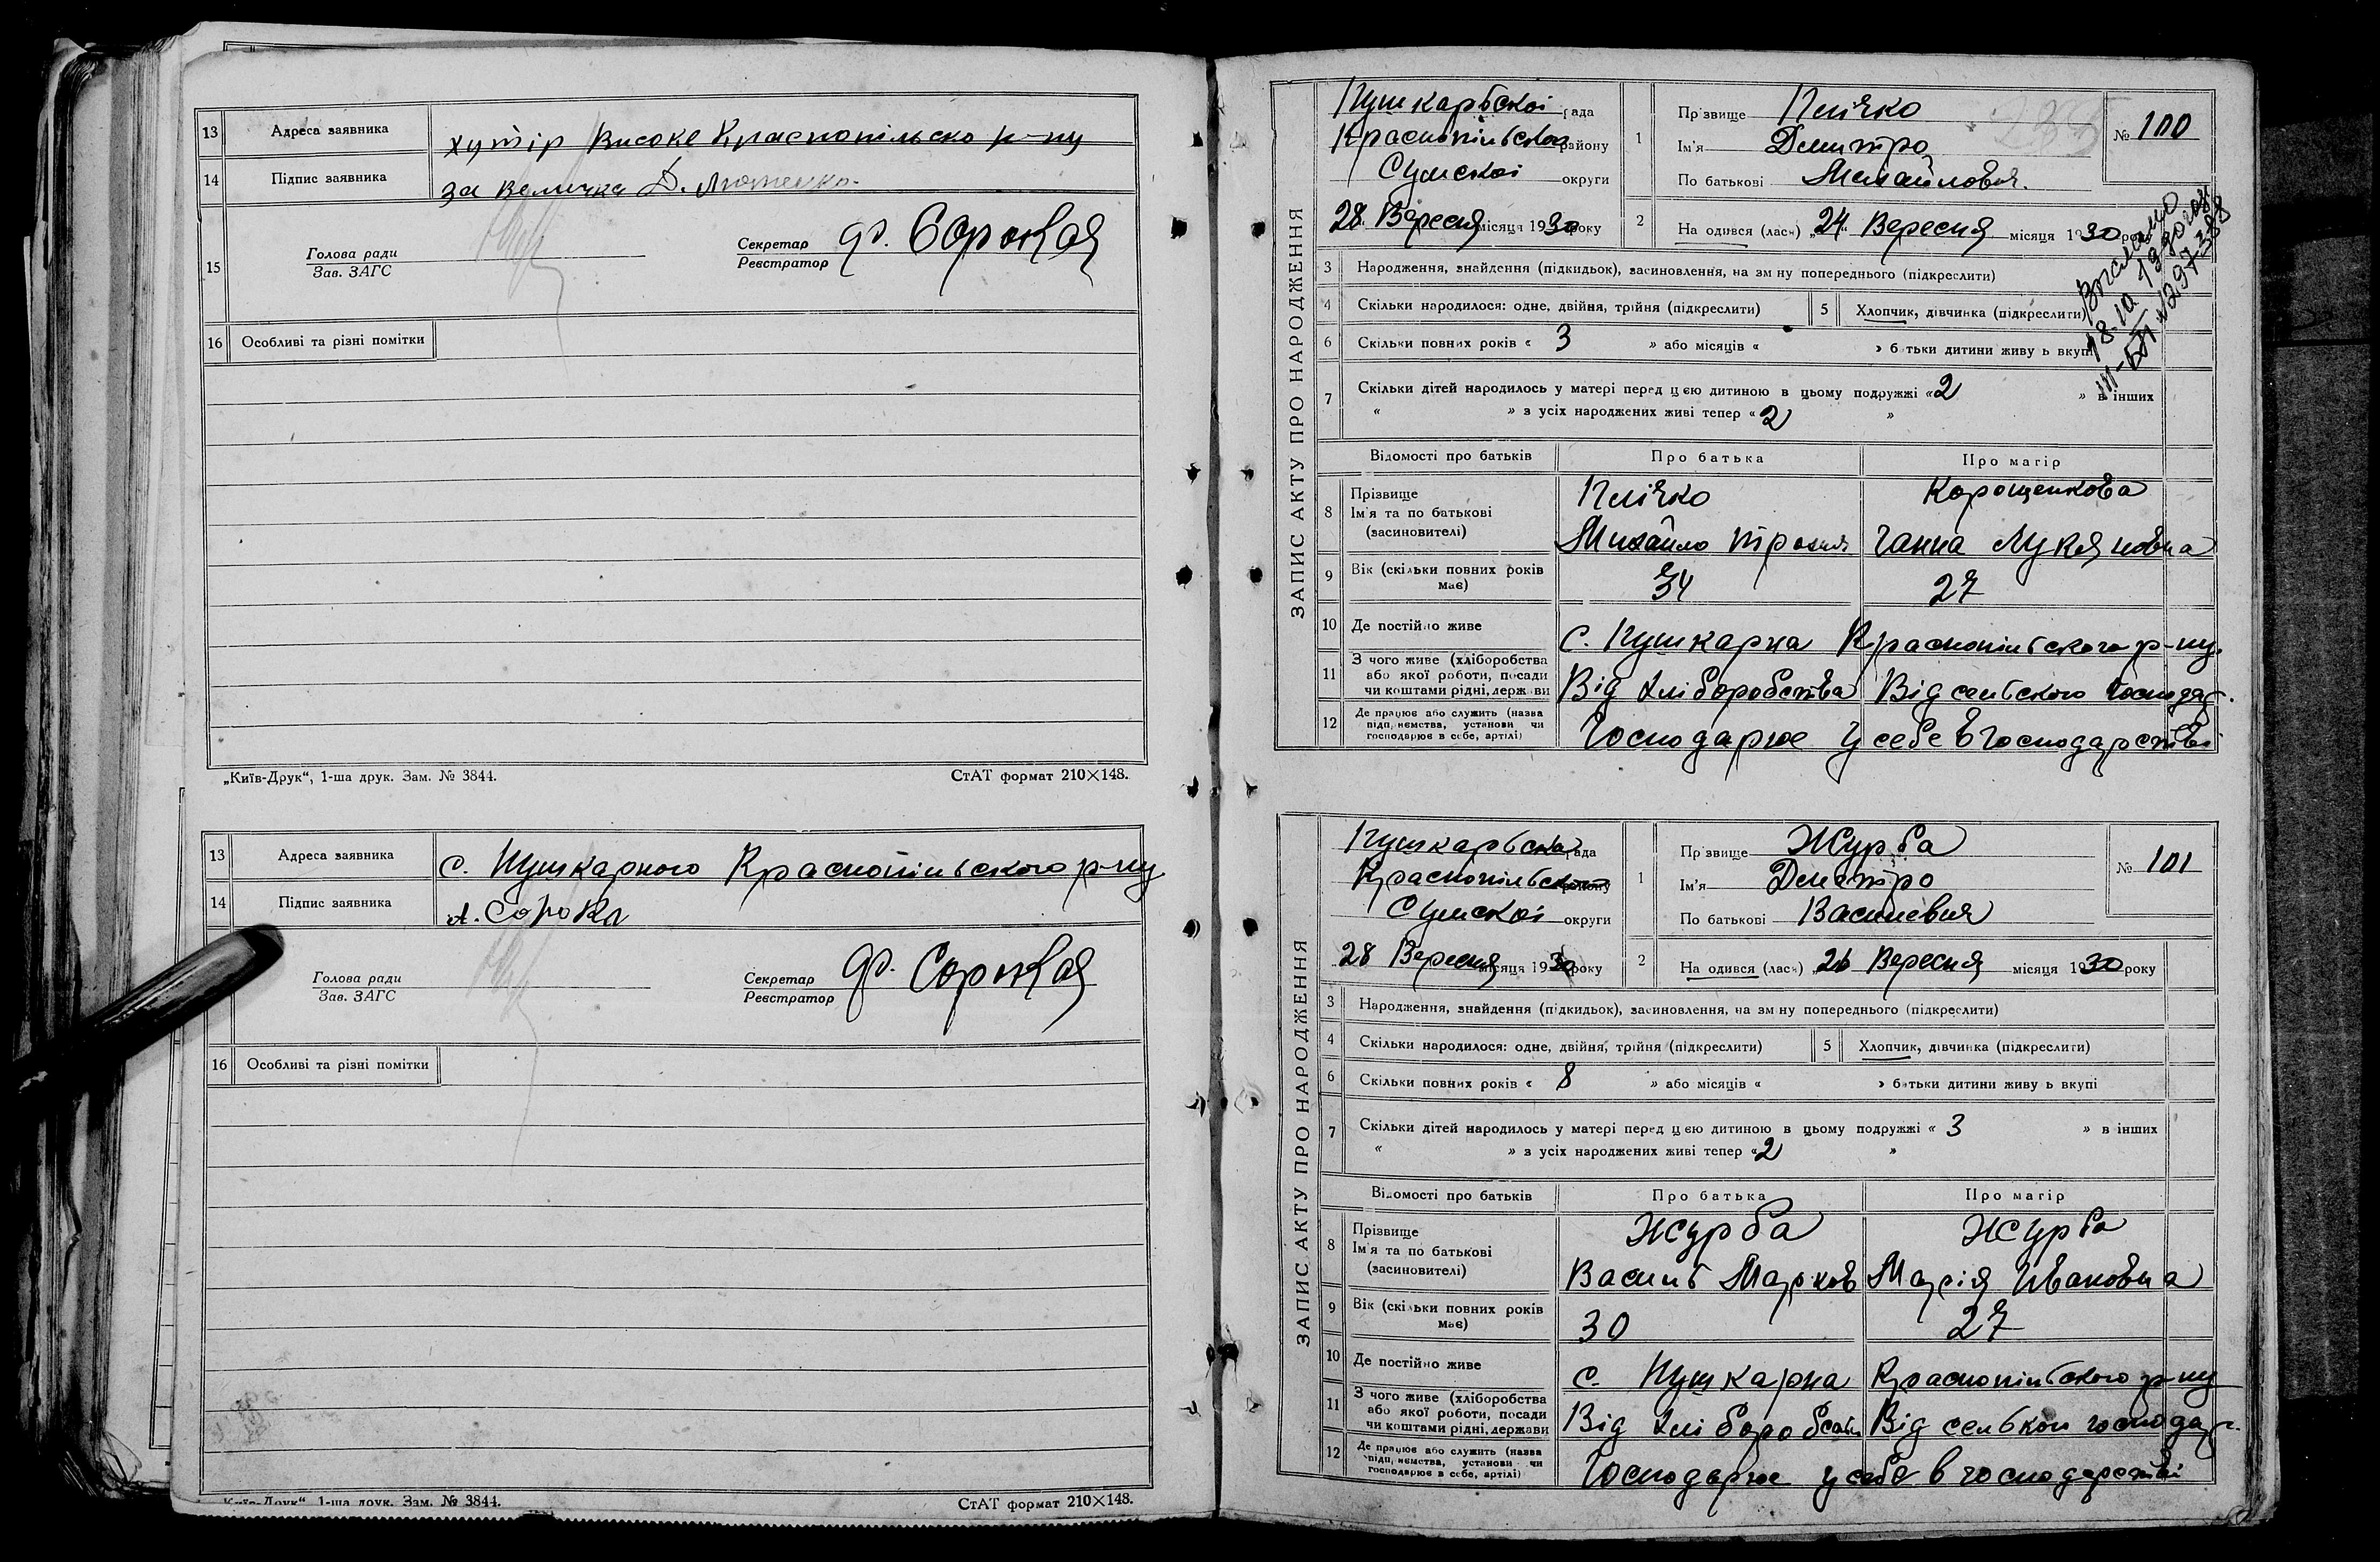 13 Адреса заявника хутір Високе Краснопільско р-ну
14 Підпис заявника за Величка Д. Лютенко.
15 Голова ради Зав. ЗАГС Секретар Реєстратор Ф. Сорокая
16 Особливі та різні помітки
„Київ-Друк“, 1-ша друк. Зам. № 3844. СтАТ формат 210×148.
13 Адреса заявника с. Пушкарного Краснопільського р-ну
14 Підпис заявника А. Сорока
Голова ради Зав. ЗАГС Секретар Реєстратор Ф. Сорокая
16 Особливі та різні помітки
Київ-Друк“, 1-ша друк. Зам. № 3844. СтАТ формат 210×148.
ЗАПИС АКТУ ПРО НАРОДЖЕННЯ
Пушкарської рада
Краснопільської району
Сумскої округи
28 Вересня місяця 1930 року
1 Прізвище Плічко
Ім'я Дмитро
По батькові Михайлович.
№ 100
2 Народився (лася) „24“ Вересня місяця 1930 року
3 Народження, знайдення (підкидьок), засиновлення, на зміну попереднього (підкреслити)
4 Скільки народилося: одне, двійня, трійня (підкреслити) 5 Хлопчик, дівчинка (підкреслити)
6 Скільки повних років « 3 » або місяців « » батьки дитини живуть вкупі
7 Скільки дітей народилось у матері перед цією дитиною в цьому подружжі «2 » в інших
« » з усіх народжених живі тепер «2 »
Відомості про батьків Про батька Про матір
8 Прізвище Ім'я та по батькові (засиновителі) Плічко Корощенкова
Михайло Ганна Лукяновна
9 Вік (скільки повних років має) 34 27
10 Де постійно живе с. Пушкарна Краснопільського р-ну.
11 З чого живе (хліборобства або якої роботи, посади чи коштами рідні, держави Від хліборобства Від сельського господар.
12 Де працює або служить (назва підприємства, установи чи господарює в себе, артілі) Господарює у себе в господарстві
18.10 1980
ЗАПИС АКТУ ПРО НАРОДЖЕННЯ
Пушкарьска рада
Краснопільского району
Сумскої округи
28 Вересня місяця 1930 року
1 Прізвище Журба
Ім'я Дмитро
По батькові Васильевич
№ 101
2 Народився (лася) „26 Вересня місяця 1930 року
3 Народження, знайдення (підкидьок), засиновлення, на зміну попереднього (підкреслити)
4 Скільки народилося: одне, двійня, трійня (підкреслити) 5 Хлопчик, дівчинка (підкреслити)
6 Скільки повних років « 8 » або місяців « » батьки дитини живуть вкупі
7 Скільки дітей народилось у матері перед цією дитиною в цьому подружжі « 3 » в інших
« » з усіх народжених живі тепер «2 »
Відомості про батьків Про батька Про матір
8 Прізвище Ім'я та по батькові (засиновителі) Журба Журба
Василь Марков Марія Ивановна
9 Вік (скільки повних років має) 30 27
10 Де постійно живе с. Пушкарна Краснопільского р-ну
11 З чого живе (хліборобства або якої роботи, посади чи коштами рідні, держави Від хліборобств Від сельског господар.
12 Де працює або служить (назва підприємства, установи чи господарює в себе, артілі) Господарює у себе в господарстві